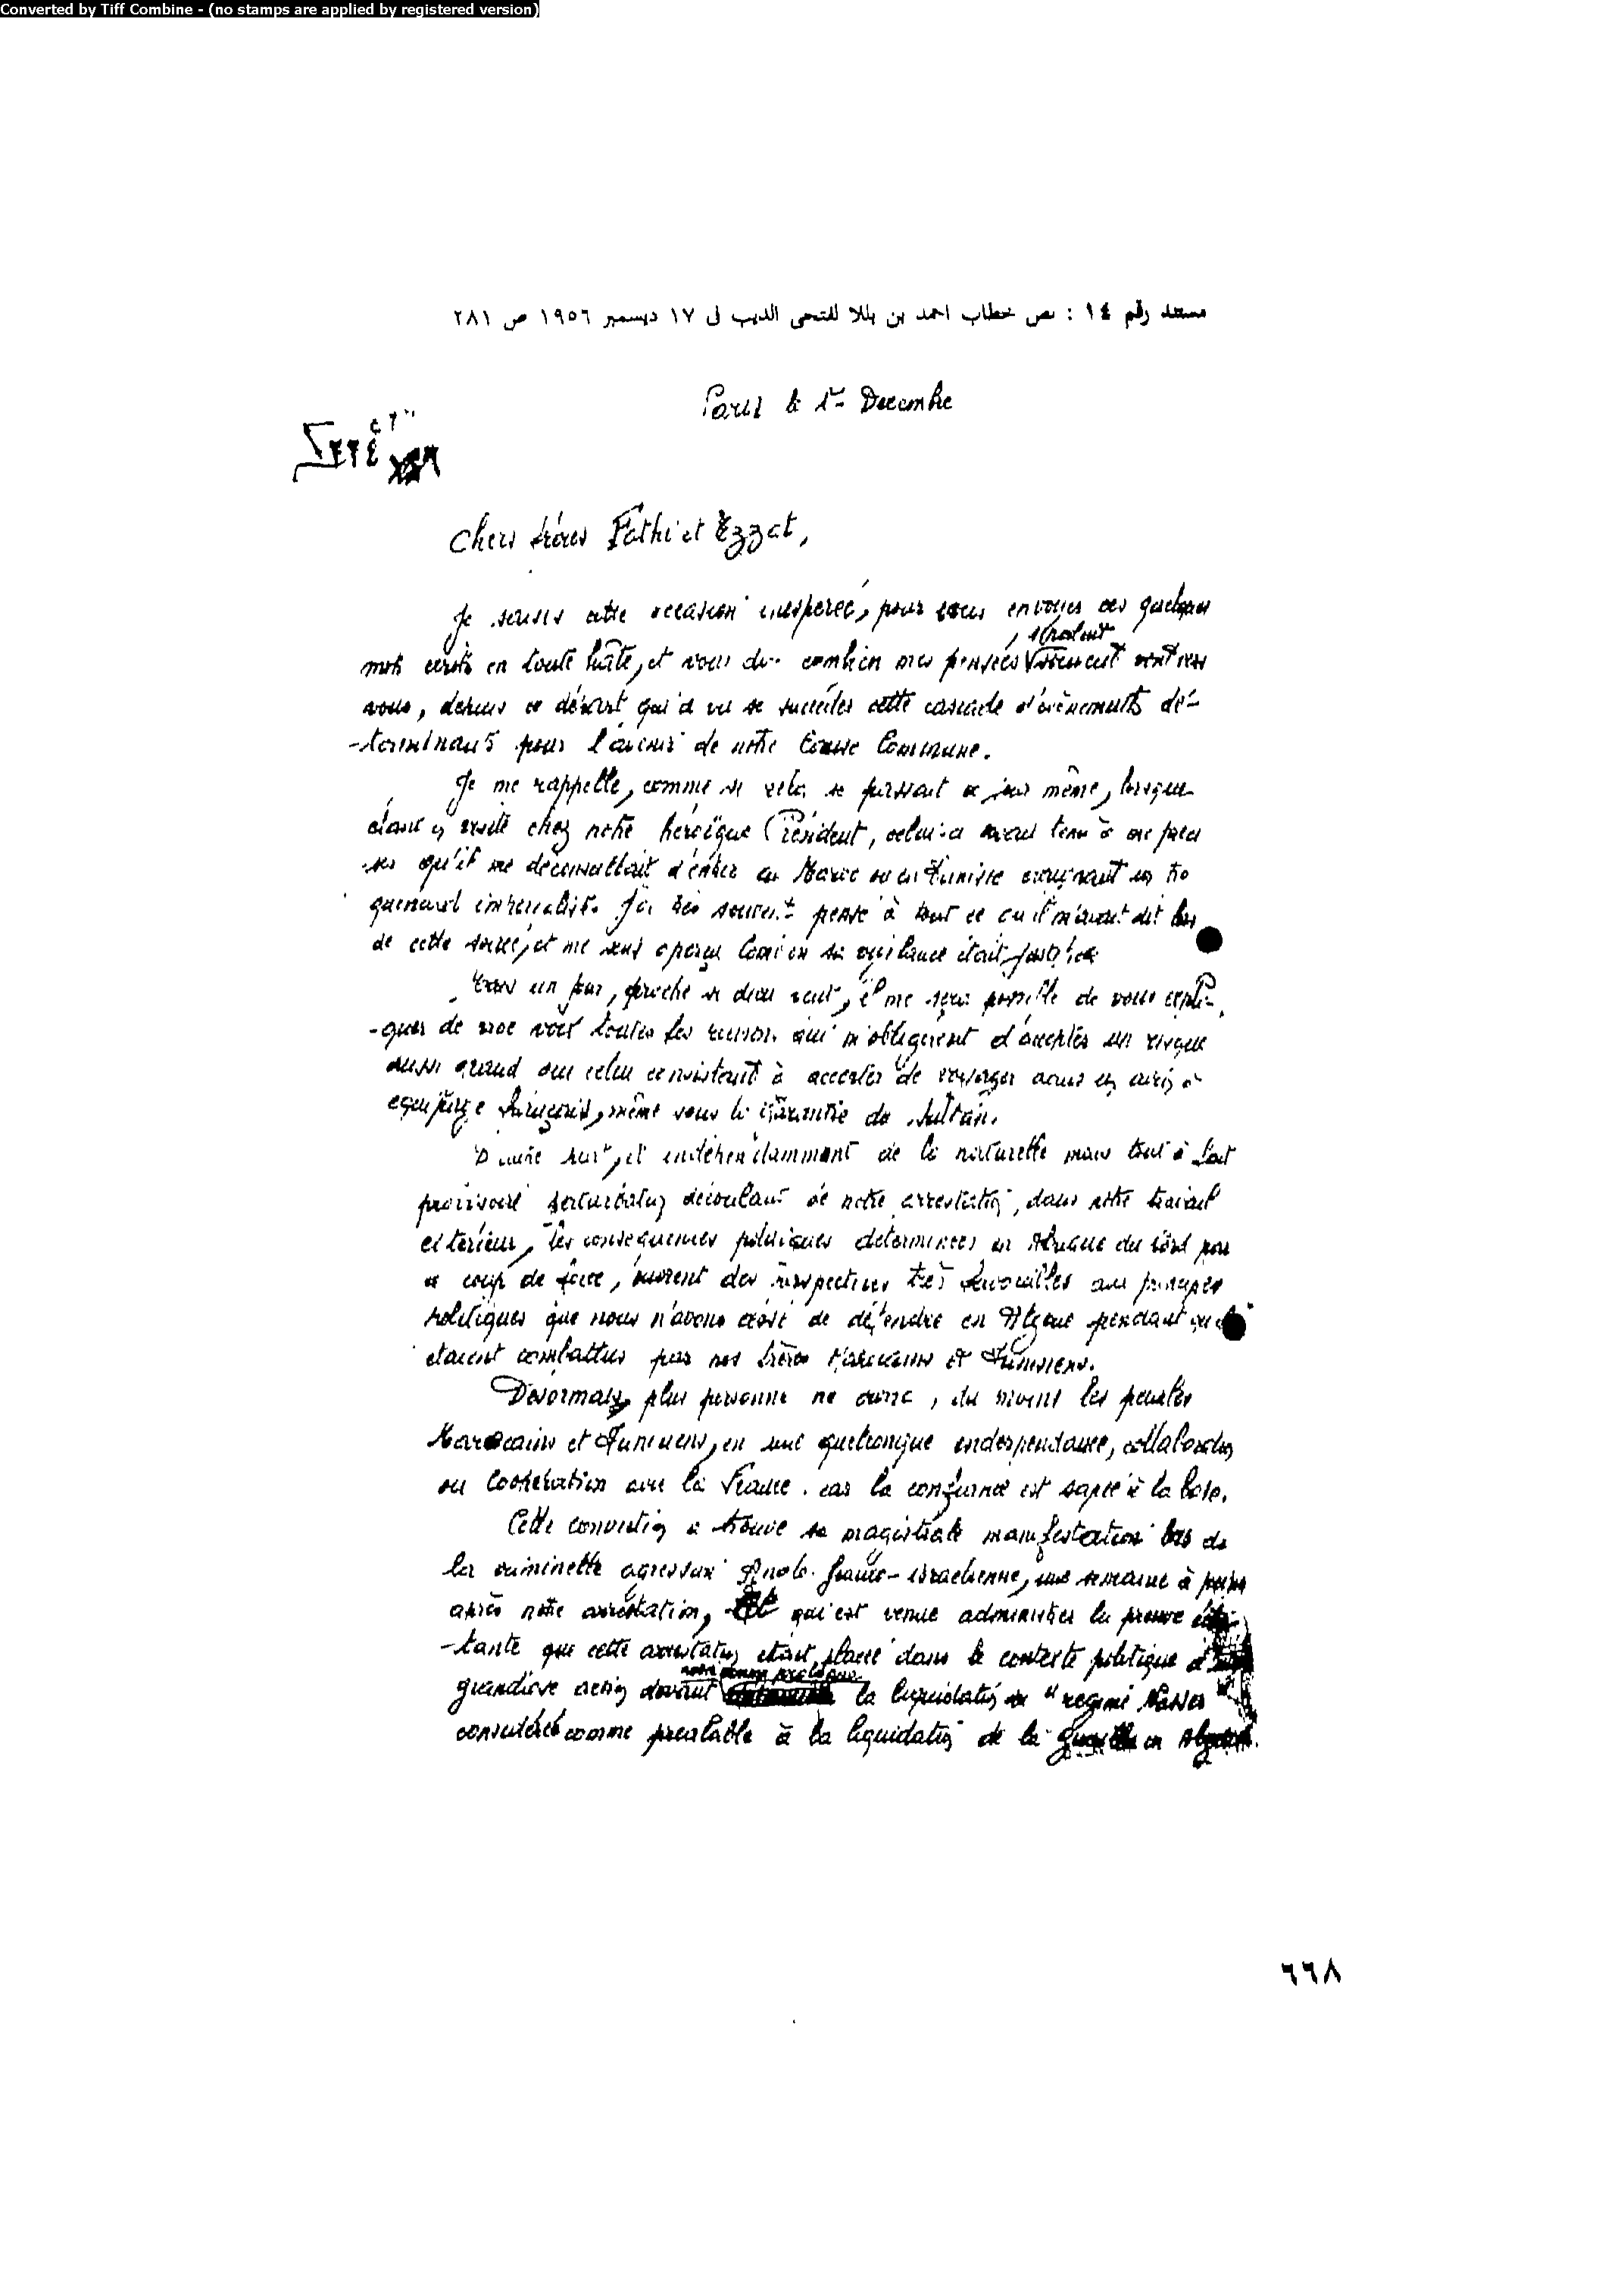 Converted by Tiff Combine - (no stamps are applied by registered version)
مستند رقم ١٤ : نص خطاب احمد بن بللا لفتحى الديب فى ١٧ ديسمبر ١٩٥٦ ص ٢٨١
Paris le Decembre
Chers frères Fathi et Ezzat,
Je saisis cette occasion inesperée, pour vous envoyer ces quelques
mots écrits en toute hâte, et vous dire combien mes pensées vont vers
vous, depuis ce départ qui a vu se succéder cette cascade d'évènements dé-
-terminants pour l'avenir de notre Cause Commune.
Je me rappelle, comme si cela se passait ce jour même, lorsque
étant en visite chez notre héroïque Président, celui-ci avait tenu à me préci
ser qu'il me déconseillait d'entrer au Maroc ou en Tunisie craignant un
impérialiste. J'ai très souvent pensé à tout ce qu'il m'avait dit lors
de cette soirée, et me suis aperçu combien sa vigilance était justifiée
un jour, proche si dieu veut, il me sera possible de vous expli-
-quer de vive voix toutes les raisons qui m'obligèrent d'accepter un risque
aussi grand que celui consistant à accepter de voyager dans un avion à
equipage français, même sous la garantie du Sultan.
D'autre part, et indépendamment de la naturelle mais tout à fait
provisoire perturbation découlant de notre arrestation, dans notre travail
extérieur, les conséquences politiques determinées en Afrique du Nord par
ce coup de force, ouvrent des perspectives très favorables aux principes
politiques que nous n'avons cessé de défendre en Algérie pendant qu'ils
étaient combattus par nos frères Marocains et Tunisiens.
Désormais, plus personne ne croira, du moins les peuples
Marocains et Tunisiens, en une quelconque indépendance, collaboration
ou Coopération avec la France. car la confiance est sapée à la base.
Cette conviction a trouvé sa magistrale manifestation lors de
la criminelle agression Anglo-franco-israelienne, une semaine à peine
après notre arrestation, qui est venue administrer la preuve
-tante que cette arrestation était placée dans le contexte politique d'
grandiose action devant la liquidation du "regime Nasser"
considérée comme prealable à la liquidation de la en
٦٦٨